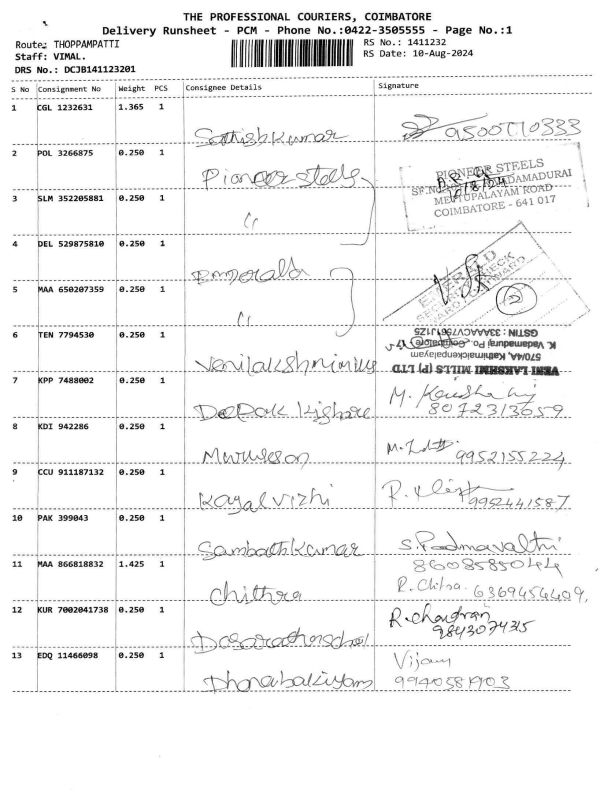 THE PROFESSIONAL COURIERS, COIMBATORE
Delivery Runsheet - PCM - Phone No.:0422-3505555 - Page No.:1
Route: THOPPAMPATTI
RS No.: 1411232
Staff: VIMAL.
RS Date: 10-Aug-2024
DRS No.: DCJB141123201
S No Consignment No Weight PCS Consignee Details Signature
1 CGL 1232631 1.365 1
Sathishkumar 9500770333
2 POL 3266875 0.250 1
Pioneer steels
PIONEER STEELS
METTUPALAYAM ROAD
COIMBATORE - 641 017
3 SLM 352205881 0.250 1
"
4 DEL 529875810 0.250 1
Emerald
EMERALD
5 MAA 650207359 0.250 1
"
6 TEN 7794530 0.250 1
GSTIN : 33AAACV7561J1Z5
K. Vadamadurai Po, Coimbatore - 17
570/4A, Kathimalokenpalayam
VENI LAKSHMI MILLS (P) LTD
Venilakshmimills
7 KPP 7488002 0.250 1
Deepak kishore
8072313659
8 KDI 942286 0.250 1
Murugeson 9952155224
9 CCU 911187132 0.250 1
Kayalvizhi 9952441587
10 PAK 399043 0.250 1
Sambathkumar S. Padmavathi
8608585044
11 MAA 866818832 1.425 1
Chithra R. Chitra 6369454409
12 KUR 7002041738 0.250 1
R. Chandran
9843074315
13 EDQ 11466098 0.250 1
Vijay
Dhanabakiyam 9940581903